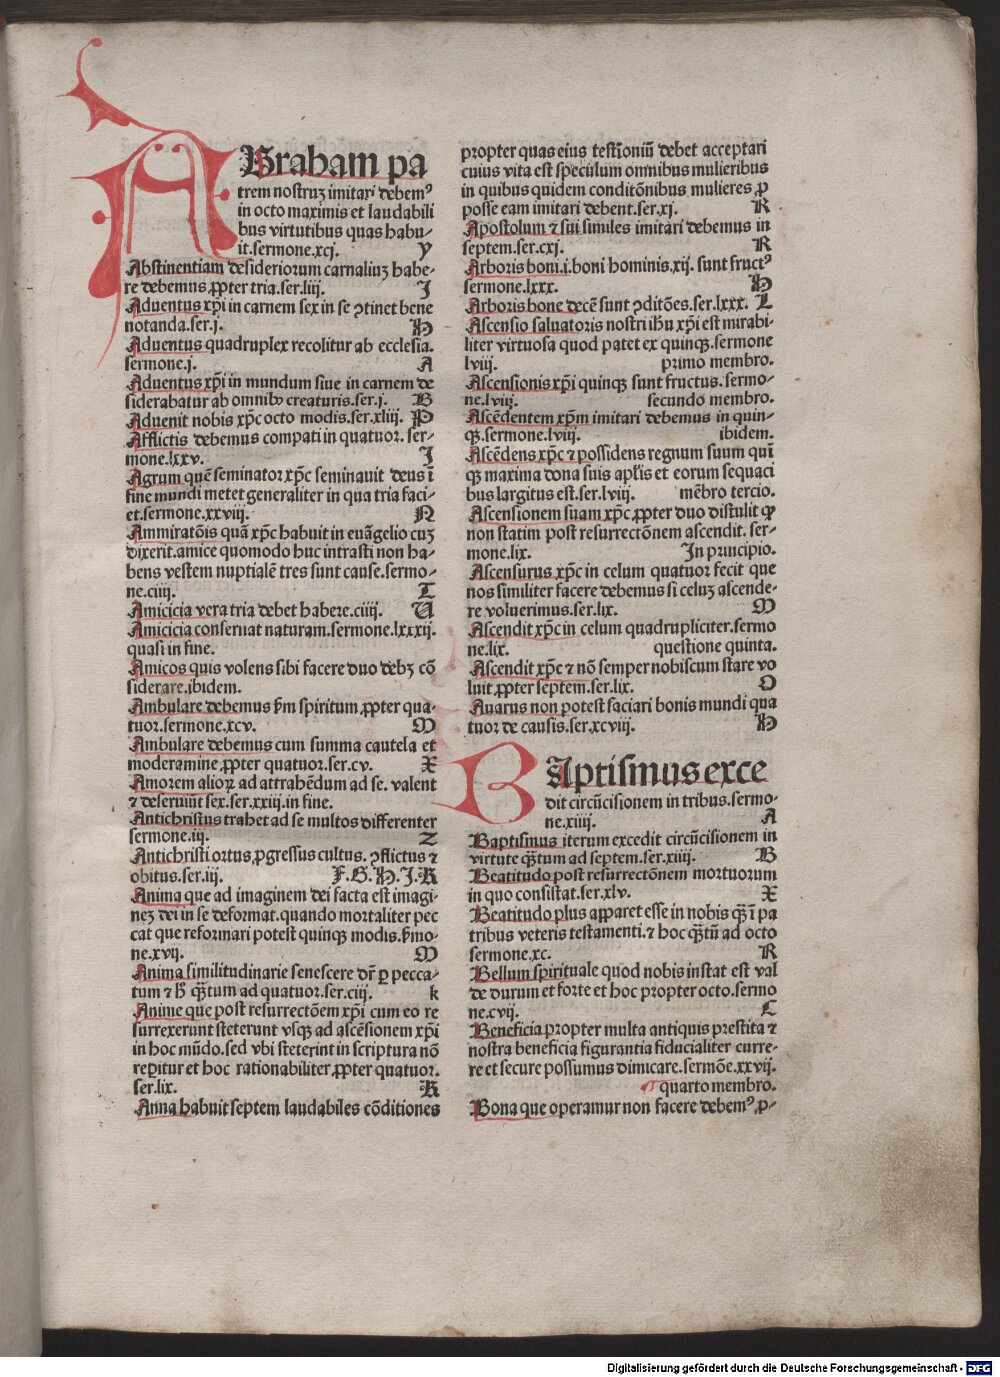 ABraham pa
trem nostruꝫ imitari debemꝰ
in octo maximis et laudabili
bus virtutibus quas habu-
it.sermone.xcj. y
Abstinentiam desideriorum carnaliuꝫ habe-
re debemus ꝓpter tria.ser.liij. J
Aduentus xp̄i in carnem sex in se ꝯtinet bene
notanda.ser.j. H
Aduentus quadruplex recolitur ab ecclesia.
sermone.j. A
Aduentus xp̄i in mundum siue in carnem de
siderabatur ab omnibꝰ creaturis.ser.j. B
Aduenit nobis xp̄c octo modis.ser.xliij. P
Afflictis debemus compati in quatuor. ser-
mone.lxxv. J
Agrum quē seminator xp̄c seminauit deus ī
fine mundi metet generaliter in qua tria faci-
et.sermone.xxviij. N
Ammiratōis quā xp̄c habuit in euāgelio cuꝫ
dixerit.amice quomodo huc intrasti non ha-
bens vestem nuptialē tres sunt cause.sermo-
ne.ciiij. T
Amicicia vera tria debet habere.ciiij. U
Amicicia conseruat naturam.sermone.lxxxij.
quasi in fine.
Amicos quis volens sibi facere duo debꝫ cō
siderare.ibidem.
Ambulare debemus ẜm spiritum ꝓpter qua-
tuor.sermone.xcv. M
Ambulare debemus cum summa cautela et
moderamine ꝓpter quatuor.ser.cv. X
Amorem alioꝝ ad attrahēdum ad se. valent
⁊ deseruiūt sex.ser.xxiij.in fine.
Antichristus trahet ad se multos differenter
sermone.iij. Z
Antichristi ortus ꝓgressus cultus. ꝯflictus ⁊
obitus.ser.iij. F.G.H.J.K
Anima que ad imaginem dei facta est imagi-
neꝫ dei in se deformat.quando mortaliter pec
cat que reformari potest quinqꝫ modis.ẜmo-
ne.xvij. M
Anima similitudinarie senescere dr̄ ꝑ pecca-
tum ⁊ h̄ qꝫtum ad quatuor.ser.ciij. k
Anime que post resurrectōem xp̄i cum eo re
surrexerunt steterunt vsqꝫ ad ascēsionem xp̄i
in hoc mūdo.sed vbi steterint in scriptura nō
reꝑitur et hoc rationabiliter ꝓpter quatuor.
ser.lix. K
Anna habuit septem laudabiles cōditiones
propter quas eius testīoniū debet acceptari
cuius vita est speculum omnibus mulieribus
in quibus quidem conditōnibus mulieres ꝓ
posse eam imitari debent.ser.xj. R
Apostolum ⁊ sui similes imitari debemus in
septem.ser.cxj. R
Arboris boni.i.boni hominis.xij. sunt fructꝰ
sermone.lxxx. H
Arboris bone decē sunt ꝯditōes.ser.lxxx. L
Ascensio saluatoris nostri ihū xp̄i est mirabi-
liter virtuosa quod patet ex quinqꝫ.sermone
lviij. primo membro.
Ascensionis xp̄i quinqꝫ sunt fructus. sermo-
ne.lviij. secundo membro.
Ascēdentem xp̄m imitari debemus in quin-
qꝫ.sermone.lviij. ibidem.
Ascēdens xp̄c ⁊ possidens regnum suum quī
qꝫ maxima dona suis apl̄is et eorum sequaci
bus largitus est.ser.lviij. mēbro tercio.
Ascensionem suam xp̄c ꝓpter duo distulit ꝙ
non statim post resurrectōnem ascendit. ser-
mone.lix. In principio.
Ascensurus xp̄c in celum quatuor fecit que
nos similiter facere debemus si celuꝫ ascende-
re voluerimus.ser.lix. M
Ascendit xp̄c in celum quadrupliciter.sermo
ne.lix. questione quinta.
Ascendit xp̄c ⁊ nō semper nobiscum stare vo
luit ꝓpter septem.ser.lix. O
Auarus non potest saciari bonis mundi qua
tuor de causis.ser.xcviij. H
BAptismus exce
dit circūcisionem in tribus.sermo-
ne.xiiij. A
Baptismus iterum excedit circūcisionem in
virtute qꝫtum ad septem.ser.xiiij. B
Beatitudo post resurrectōnem mortuorum
in quo consistat.ser.xlv. X
Beatitudo plus apparet esse in nobis qꝫ ī pa
tribus veteris testamenti.⁊ hoc qꝫtū ad octo
sermone.xc. R
Bellum spirituale quod nobis instat est val
de durum et forte et hoc propter octo.sermo
ne.cvij. C
Beneficia propter multa antiquis prestita ⁊
nostra beneficia figurantia fiducialiter curre-
re et secure possumus dimicare.sermōe.xxvij.
quarto membro.
Bona que operamur non facere debemꝰ ꝓ-
Digitalisierung gefördert durch die Deutsche Forschungsgemeinschaft - DFG